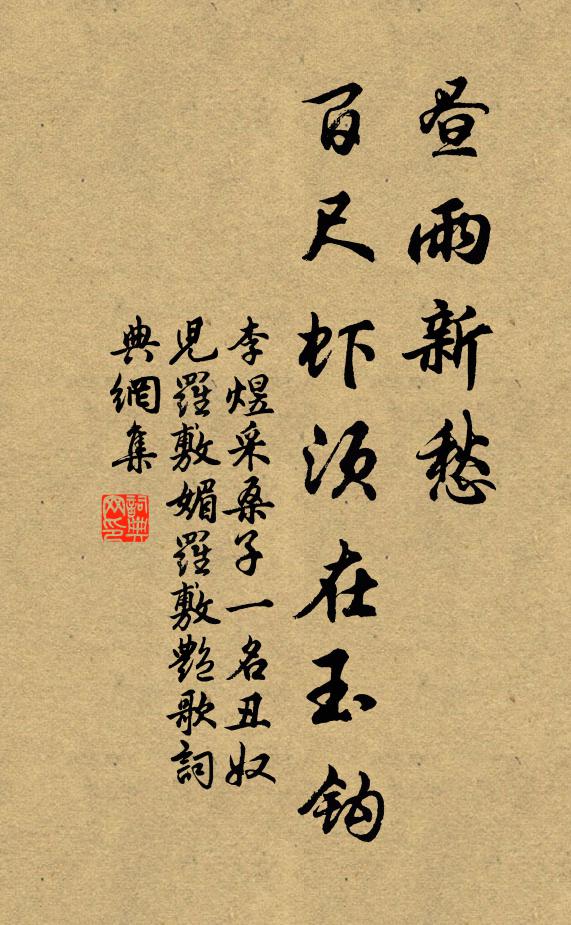 昼雨新愁
百尺虾须在玉钩
李煜采桑子一名丑奴
児羅敷媚羅敷艷歌詞
典網集
詞典網印